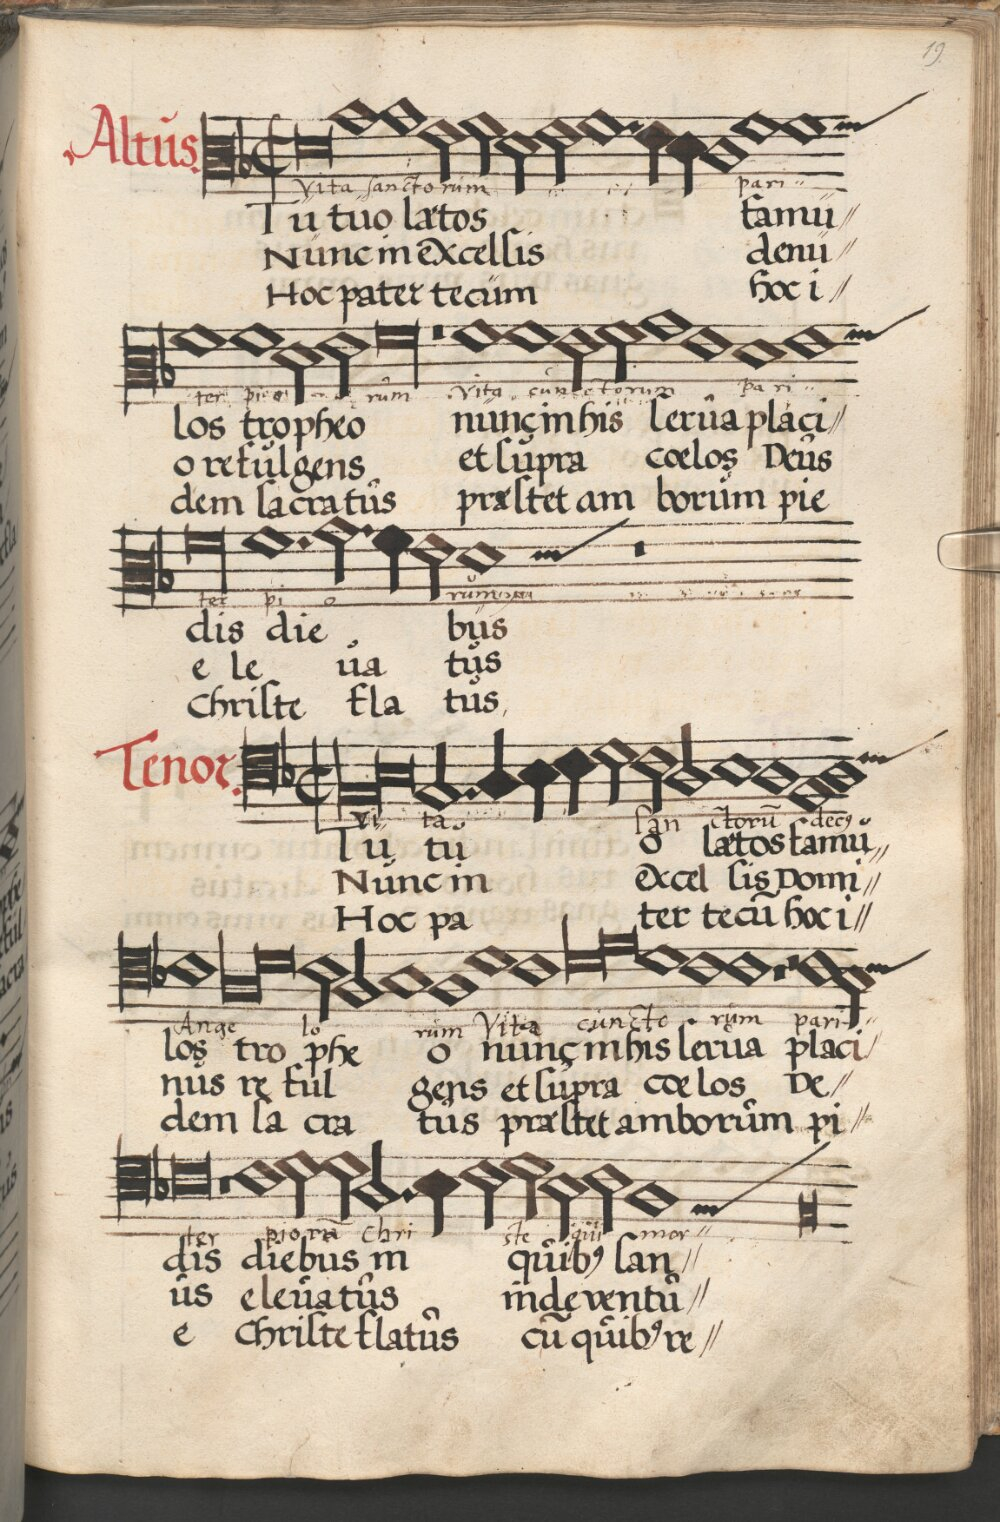 19
Altus.
Vita sanctorum pari
Tu tuo lætos famu//
Nunc in excelsis denu//
Hoc pater tecum hoc i//
ter rum Vita cunctorum pari
los tropheo nunc in his serua placi//
o refulgens et supra coelos Deus
dem sacratus præstet amborum pie
ter pi o rum
dis die bus
e le ua tus
Christe fla tus,
Tenor.
Vi ta san ctorū decꝰ
Tu tu o lætos famu//
Nunc in excel sis Domi//
Hoc pa ter tecū hoc i//
Ange lo rum Vita cuncto rum pari
los tro phe o nunc in his serua placi/
nus re ful gens et supra coe los De//
dem sa cra tus præstet amborum pi//
ter piorū Chri ste qui mor
dis diebus in quibꝰ san//
us eleuatus inde ventu//
e Christe flatus cū quibꝰ re//